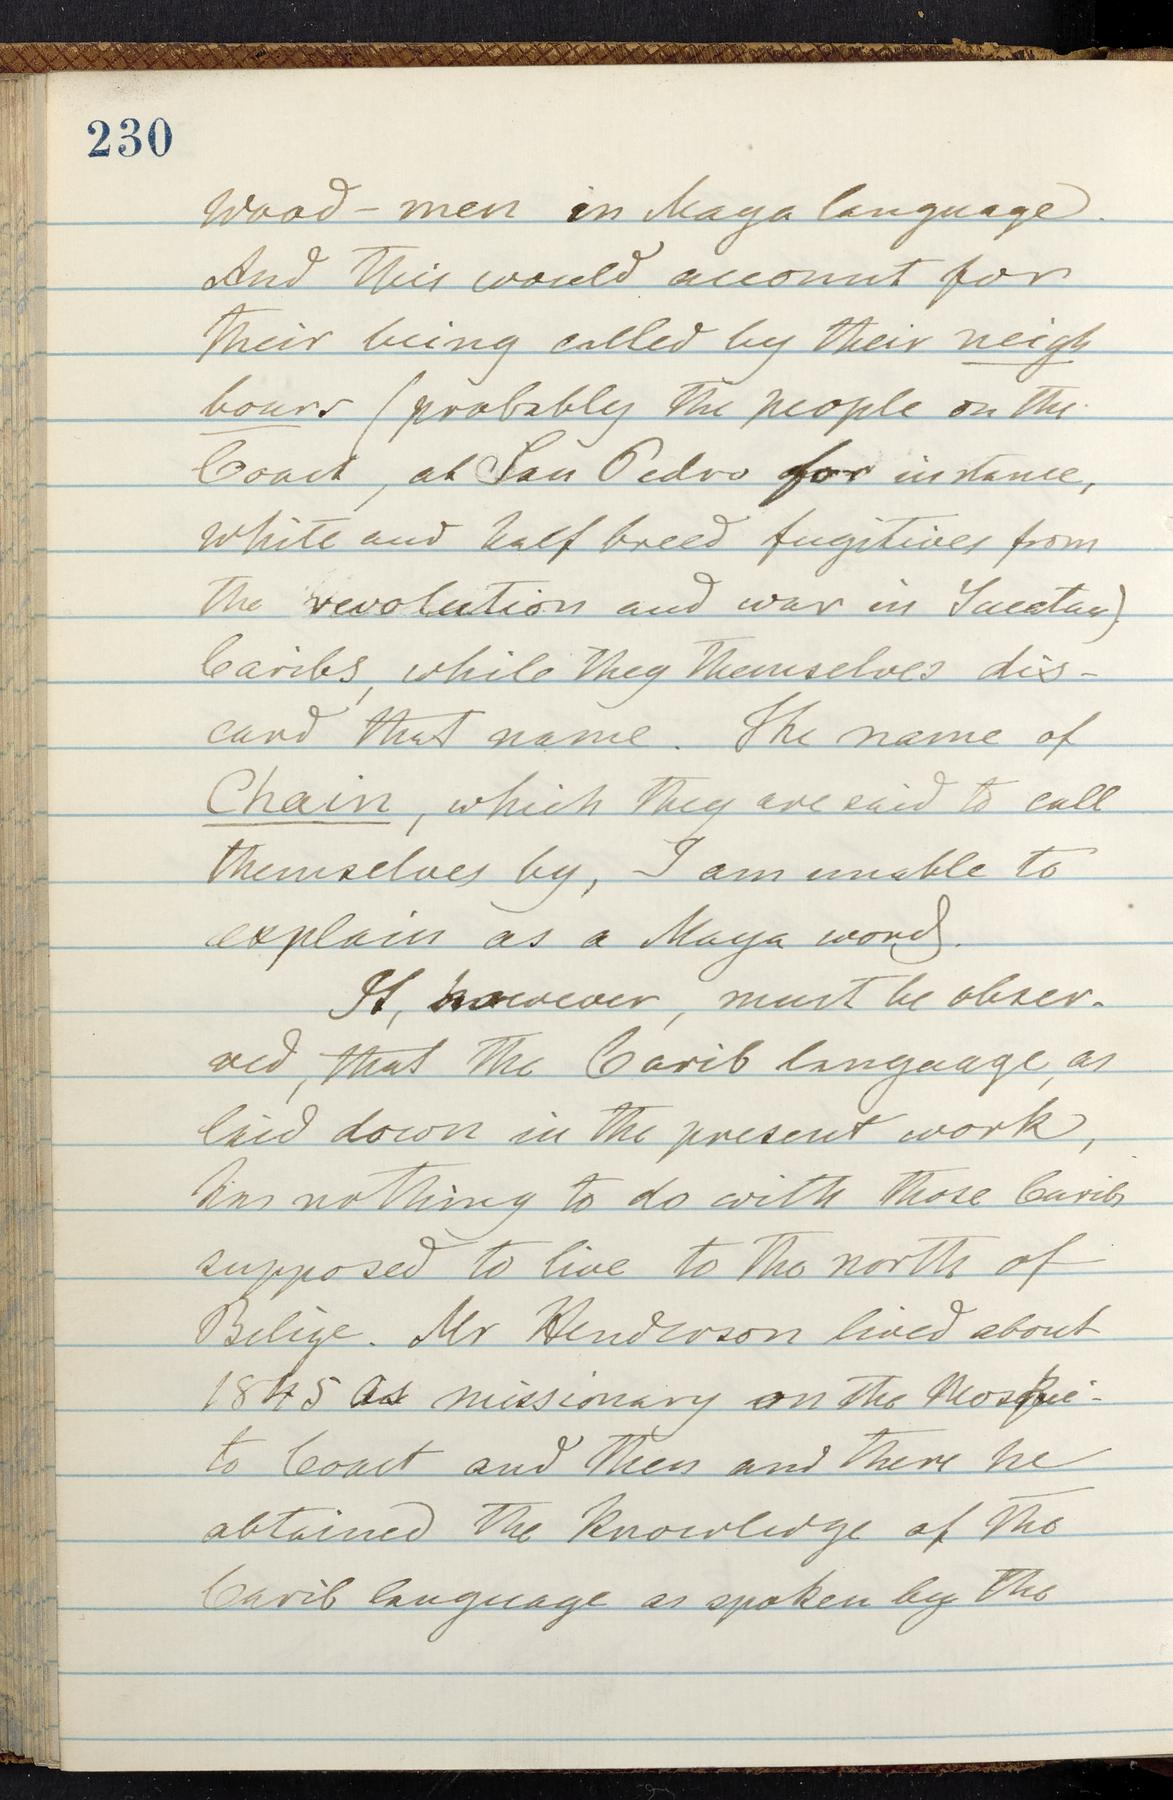 230
Wood-men in Maya language.
And this would account for
their being called by their neigh
bours (probably the people on the
Coast, at San Pedro for instance,
white and half breed fugitives from
the revolution and war in Yucatan)
Caribs, while they themselves dis-
card that name. The name of
Chain, which they are said to call
themselves by, I am unable to
explain as a Maya word.
It, however, must be obser-
ved, that the Carib language, as
laid down in the present work,
has nothing to do with those Caribs
supposed to live to the north of
Belize. Mr Henderson lived about
1845 as missionary on the Mosqui-
to Coast and then and there he
obtained the knowledge of the
Carib language as spoken by the